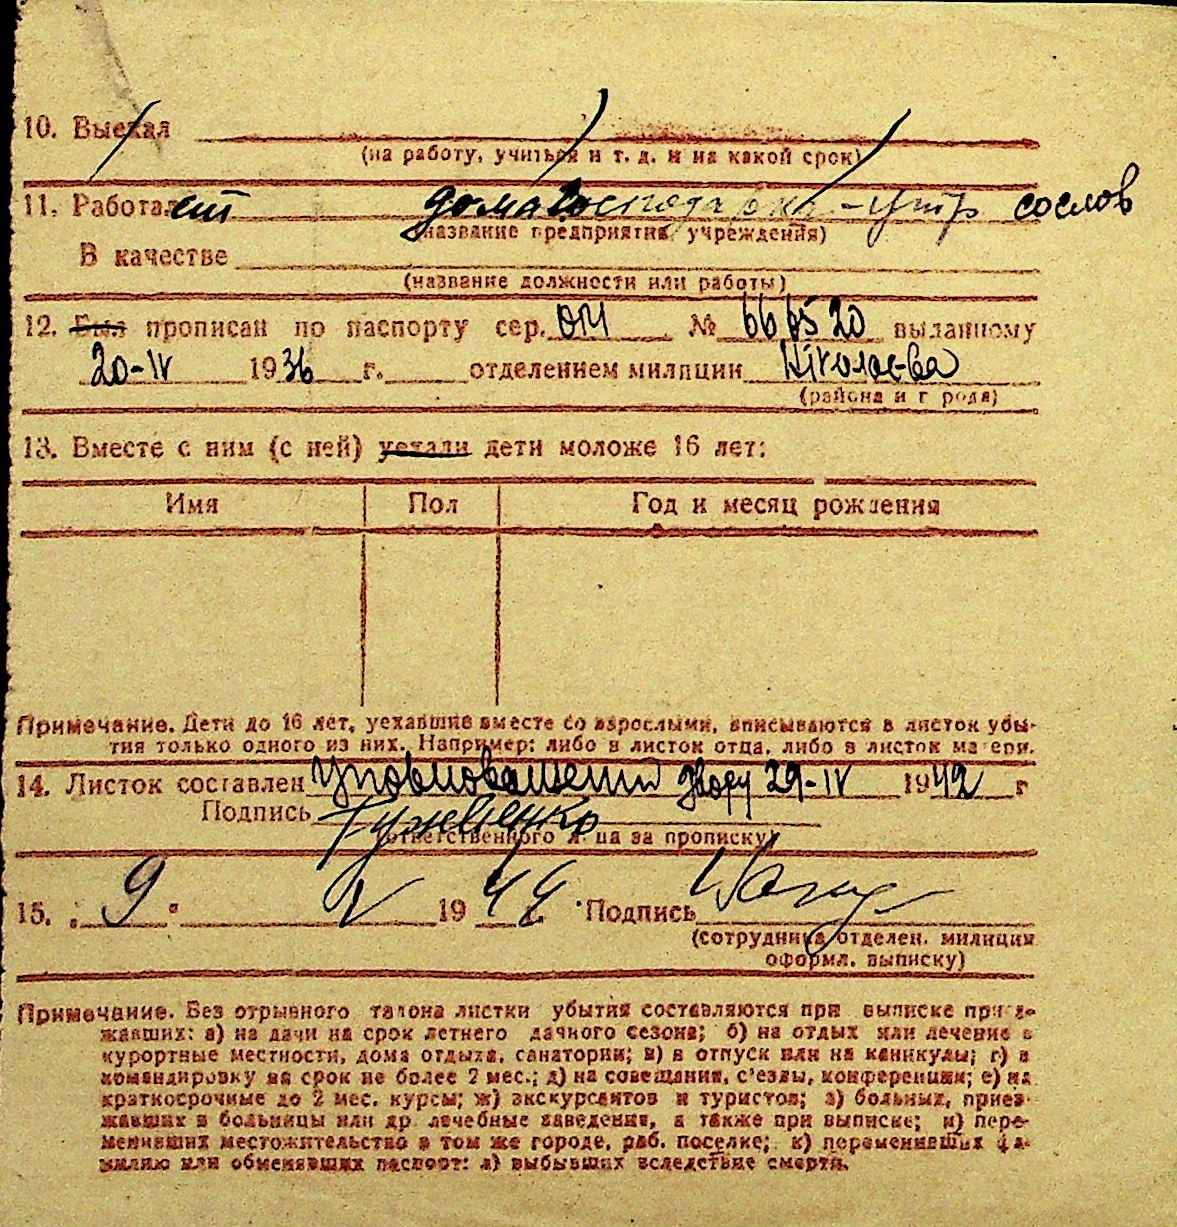 10. Выехал
(на работу, учиться и т. д. и на какой срок)
11. Работает домагосподарка - утр сослов
(название предприятия, учреждения)
В качестве
(название должности или работы)
12. Был прописан по паспорту сер. ОМ № 666520 выданному
20-IV 1936 г. отделением милиции Ніколаєва
(района и города)
13. Вместе с ним (с ней) уехали дети моложе 16 лет:
Имя Пол Год и месяц рождения
Примечание. Дети до 16 лет, уехавшие вместе со взрослыми, вписываются в листок убы-
тия только одного из них. Например: либо в листок отца, либо в листок матери.
14. Листок составлен 29-IV 1942 г
Подпись
ответственного лица за прописку)
15. „ 9 " V 1944 г. Подпись
(сотрудника отделен. милиции
оформл. выписку)
Примечание. Без отрывного талона листки убытия составляются при выписке приез-
жавших: а) на дачи на срок летнего дачного сезона; б) на отдых или лечение в
курортные местности, дома отдыха, санатории; в) в отпуск или на каникулы; г) в
командировку на срок не более 2 мес.; д) на совещания, с'езды, конференции; е) на
краткосрочные до 2 мес. курсы; ж) экскурсантов и туристов; з) больных, приез-
жавших в больницы или др. лечебные заведения, а также при выписке; и) пере-
менивших местожительство в том же городе, раб. поселке; к) переменивших фа-
милию или обменявших паспорт: л) выбывших вследствие смерти.